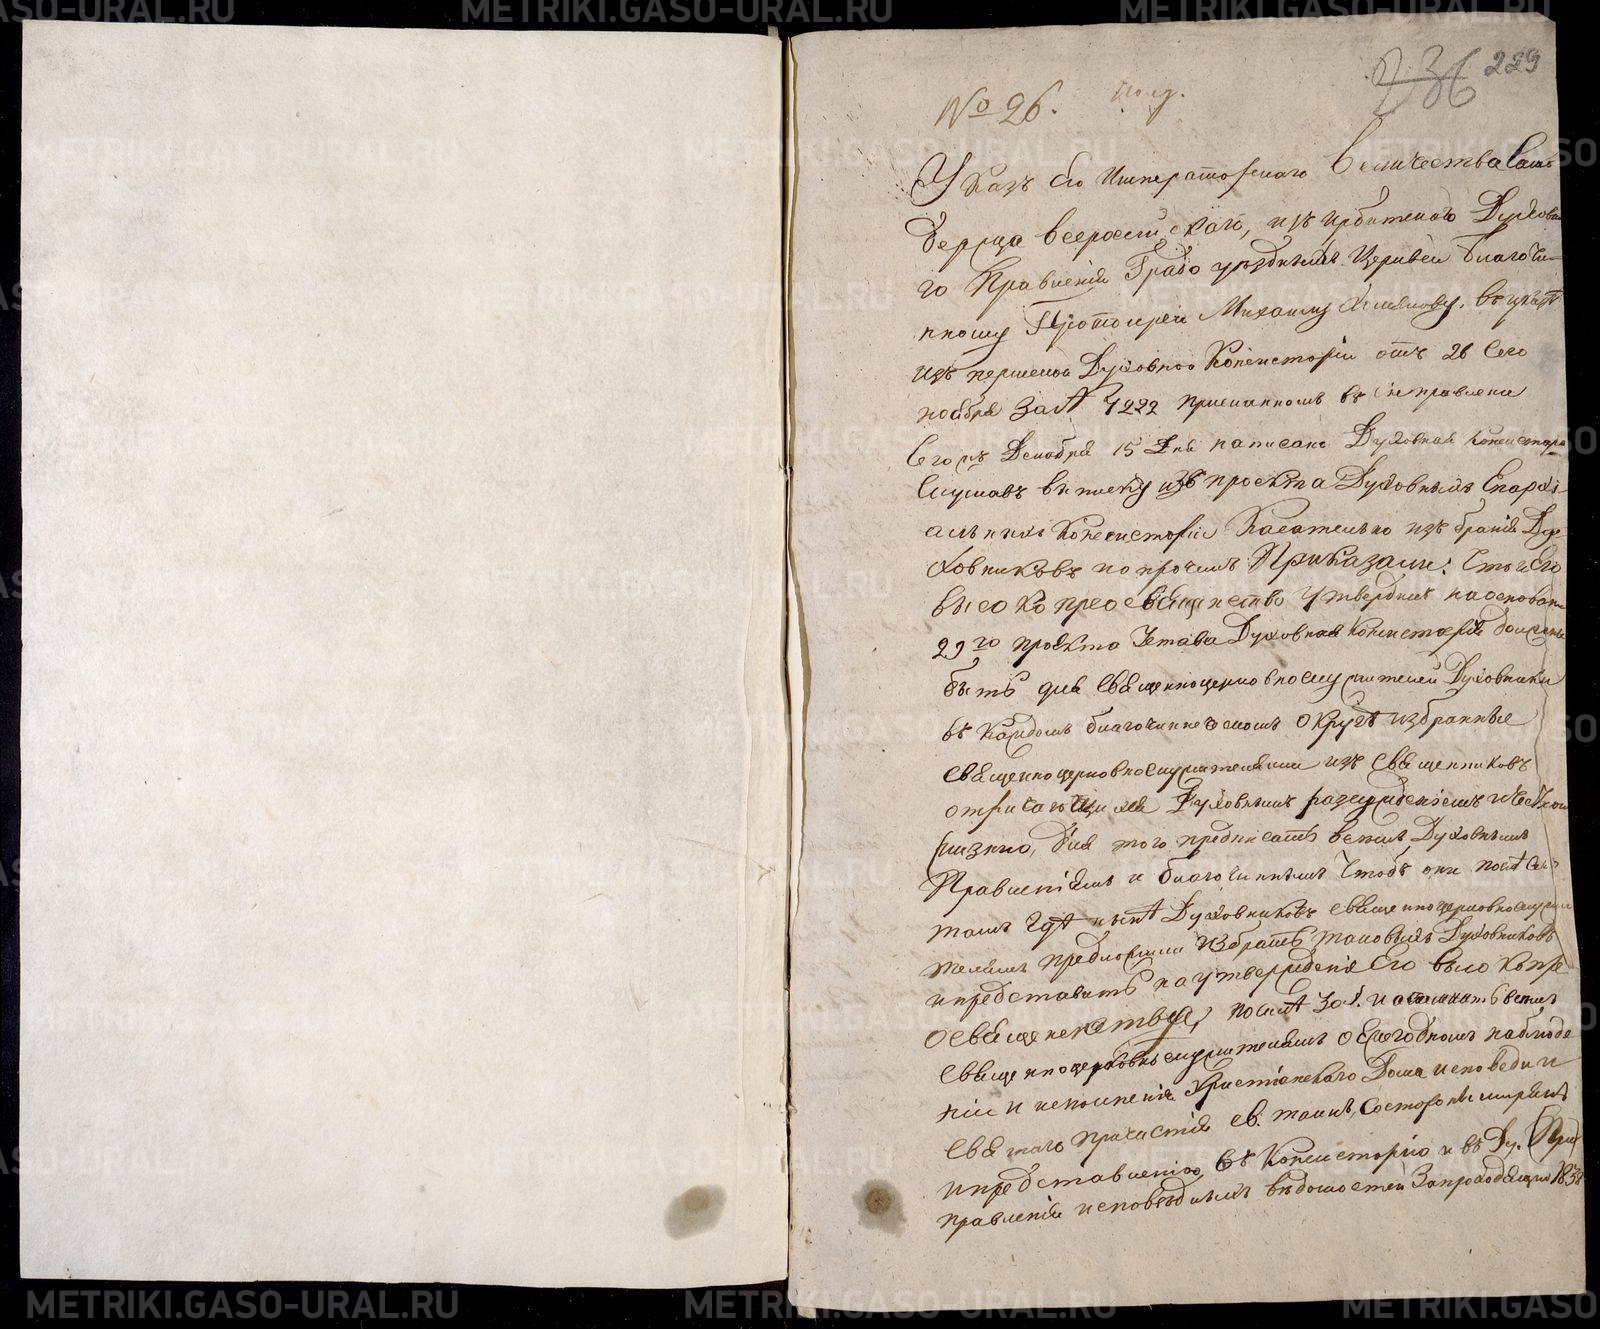 236 229
№ 26.
Указъ Его Императорскаго Величества Само
держца всеросийскаго, изъ ирбитскаго Духовна
го Правленія Градо уѣздныхъ Церквей благочи-
нному Протоиерею Михаилу Въ указѣ
изъ пермской Духовной Консисторіи отъ 26 Сего
ноября за № 7222 присланномъ въ сие правление
Сегожъ Декабря 15 Дня написано Духовная Консистория
Слушавъ выписку изъ проекта Духовныхъ Епархі-
альныхъ Консисторіи Касательно избранія Ду
ховниковъ по прочимъ Приказали: Его
высокопреосвященство утвердилъ на основании
29го проекта Устава Духовная Консисторій должны
быть для Священноцерковнослужителей Духовники
въ Каждомъ благочинническомъ Округѣ избранные
Священноцерковнослужителями изъ Священниковъ
отличающихся Духовнымъ разсужденіемъ и
жизнію, Для того предписать всемъ Духовнымъ
Правленіямъ и благочиннымъ Чтобъ они
тамъ гдѣ нѣтъ Духовниковъ священноцерковнослужи
телямъ предложили избрать таковыхъ Духовниковъ
и представить на утверждение Его высокопре
освященства, подтвердить всемъ
Священноцерковнослужителямъ о Ежегодномъ наблюде
нии и исполнении Христіанскаго Долга исповеди и
Святаго Причастія Св. таинъ,
и представленіи въ Консисторію и въ Ду.
правленія исповѣдныхъ вѣдомостей За проходящий 1838